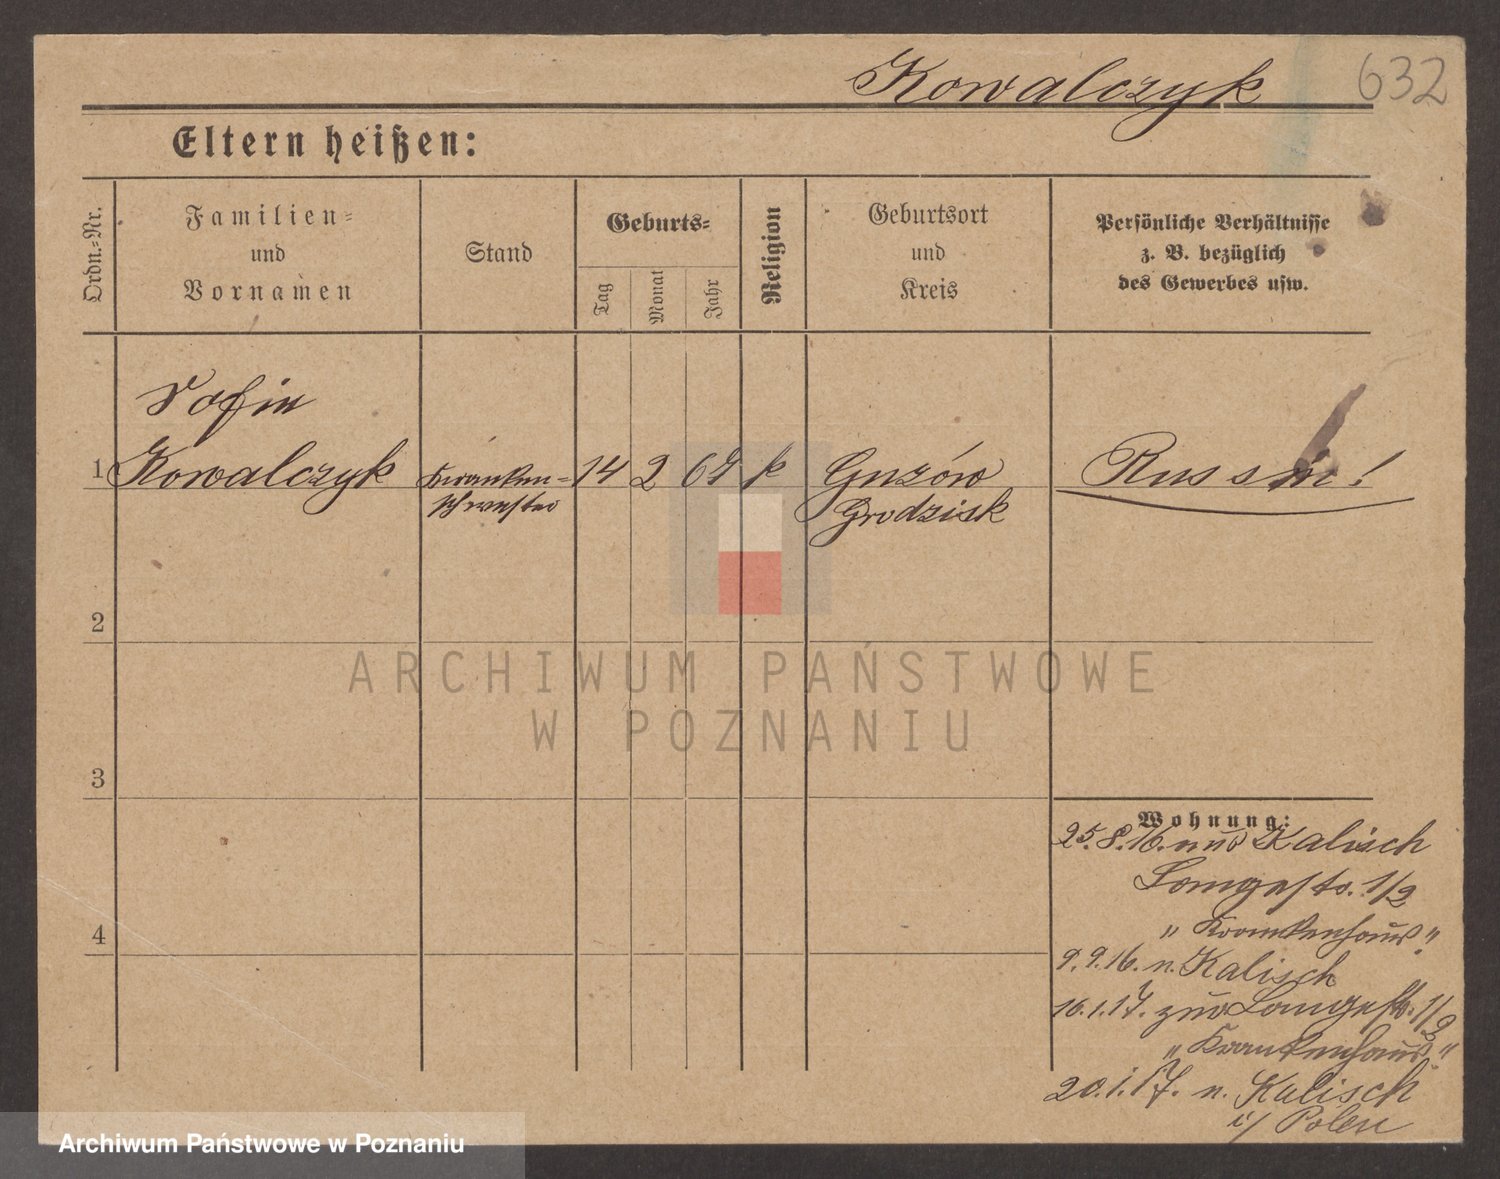 Kowalczyk 632
Eltern heißen:
Ordn.=Nr.
Familien=
und
Vornamen
Stand
Geburts=
Tag
Monat
Jahr
Religion
Geburtsort
und
Kreis
Persönliche Verhältnisse
z. B. bezüglich
des Gewerbes usw.
Sofie
1 Kowalczyk Kranken= 14 2 69 k Guzów Russin!
schwester Grodzisk
2
3
4
Wohnung:
25.8.16. aus Kalisch
Langestr. 1/2
„Krankenhaus“.
9.9.16. n. Kalisch
16.1.17. zur Langestr. 1/2
„Krankenhaus“.
20.1.17. n. Kalisch
i/ Polen
ARCHIWUM PAŃSTWOWE
W POZNANIU
Archiwum Państwowe w Poznaniu